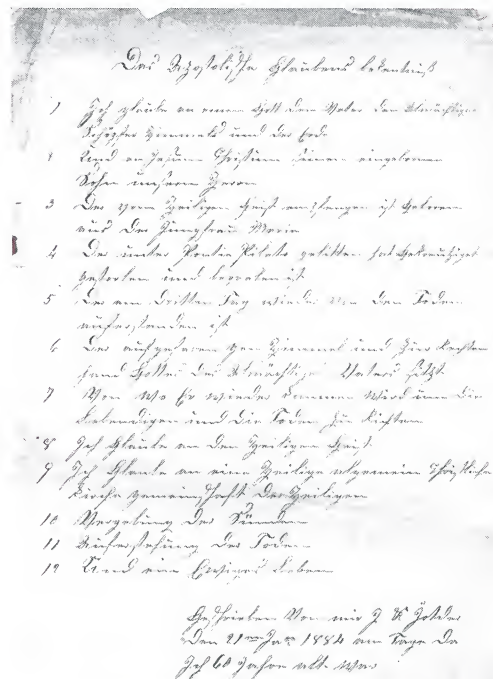 Das Apostolische Glaubens bekentniß
1 Ich glaube an einem Gott dem Vater den Almächtigen
Schöpfer Himmels und der Erde
2 Und an Jesum Christum seinen eingebornen
Sohn unsern Herrn
3 Der vom Heiligen Geist empfangen ist geboren
aus der Jungfrau Maria
4 Der unter Pontio Pilato gelitten hat gekreutziget
gestorben und begraben ist
5 Der am Dritten Tag wieder von den Toden
auferstanden ist
6 Der aufgefaren gen Himmel und zur Rechten
hand Gottes des Almächtigen Vaters sitzt
7 Von wo Er wieder kommen wird um die
Lebendigen und die Toden zu Richten
8 Ich Glaube an den Heiligen Geist
9 Ich Glaube an eine Heilige algemein Christliche
Kirche gemeinschaft der Heiligen
10 Vergebung der Sünden
11 Auferstehung der Toden
12 Und ein Ewiges Leben
Geschrieben Von mir J K
Den 21 Jan 1884 am Tage Da
Ich 60 Jahre alt war